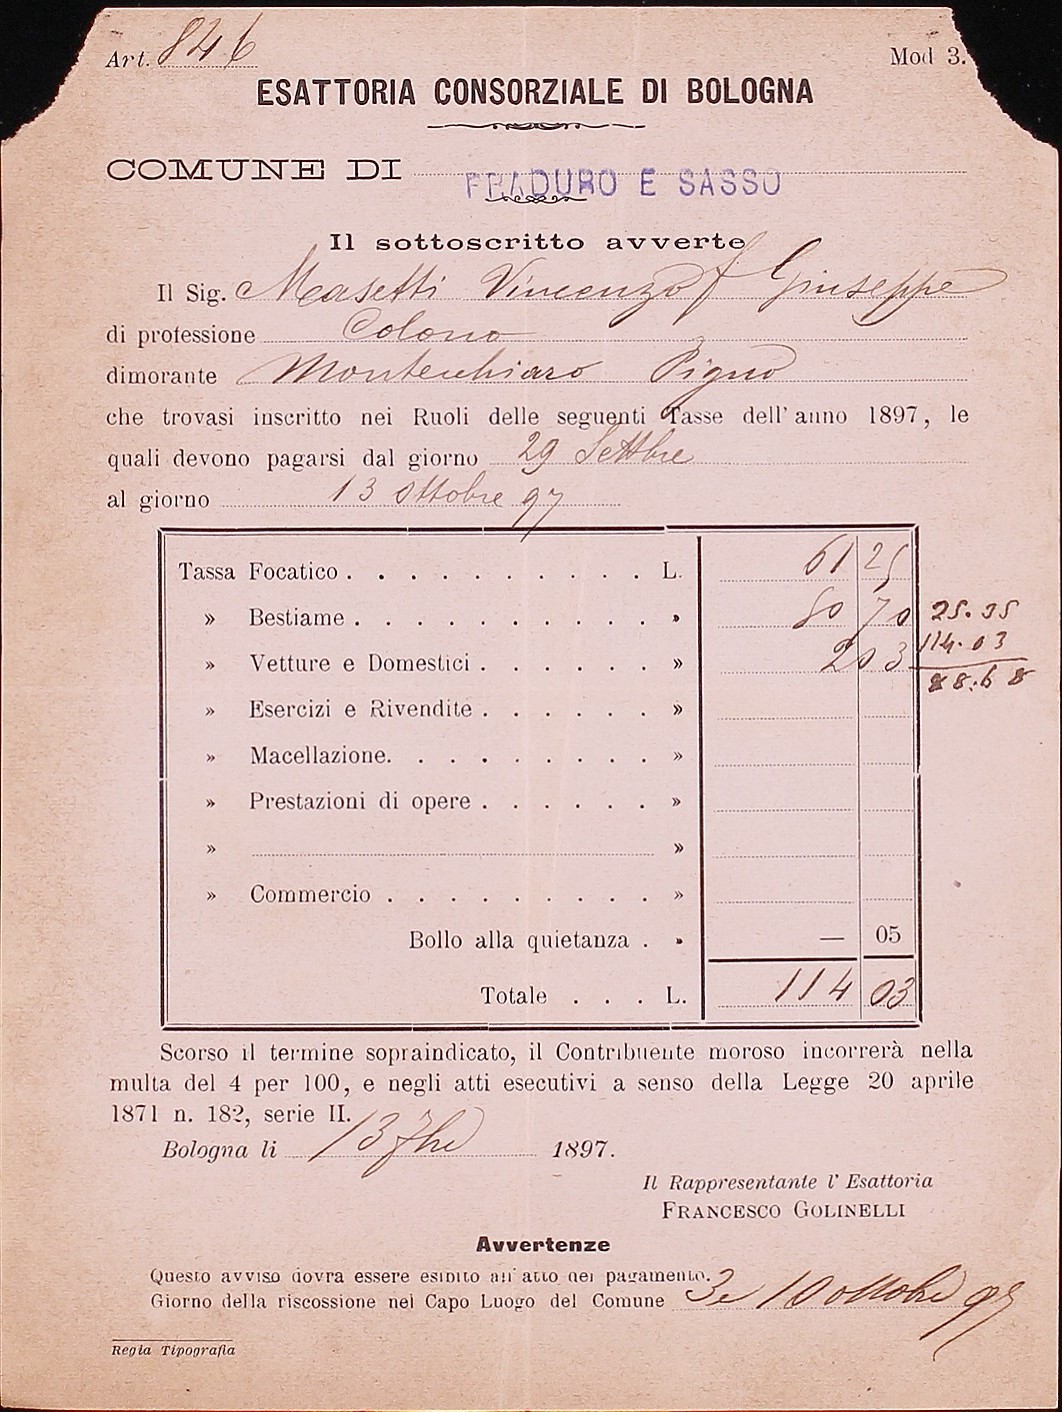 Art. 846
Mod 3.
ESATTORIA CONSORZIALE DI BOLOGNA
COMUNE DI PRADURO E SASSO
Il sottoscritto avverte
Il Sig. Masetti Vincenzo f Giuseppe
di professione Colono
dimorante Montechiaro Pigno
che trovasi inscritto nei Ruoli delle seguenti Tasse dell' anno 1897, le
quali devono pagarsi dal giorno 29 Settbre
al giorno 13 Ottobre 97
Tassa Focatico . . . . . . . . . . L. 61 25
» Bestiame . . . . . . . . . . » 50 70 25.35
» Vetture e Domestici . . . . . . » 2 03 114.03
88.68
» Esercizi e Rivendite . . . . . . »
» Macellazione. . . . . . . . . »
» Prestazioni di opere . . . . . . »
» »
» Commercio . . . . . . . . . »
Bollo alla quietanza . » — 05
Totale . . . L. 114 03
Scorso il termine sopraindicato, il Contribuente moroso incorrerà nella
multa del 4 per 100, e negli atti esecutivi a senso della Legge 20 aprile
1871 n. 182, serie II.
Bologna li 13 7bre 1897.
Il Rappresentante l' Esattoria
FRANCESCO GOLINELLI
Avvertenze
Questo avviso dovrà essere esibito all' atto del pagamento.
Giorno della riscossione nel Capo Luogo del Comune 3 e 10 ottobre 97
Regia Tipografia